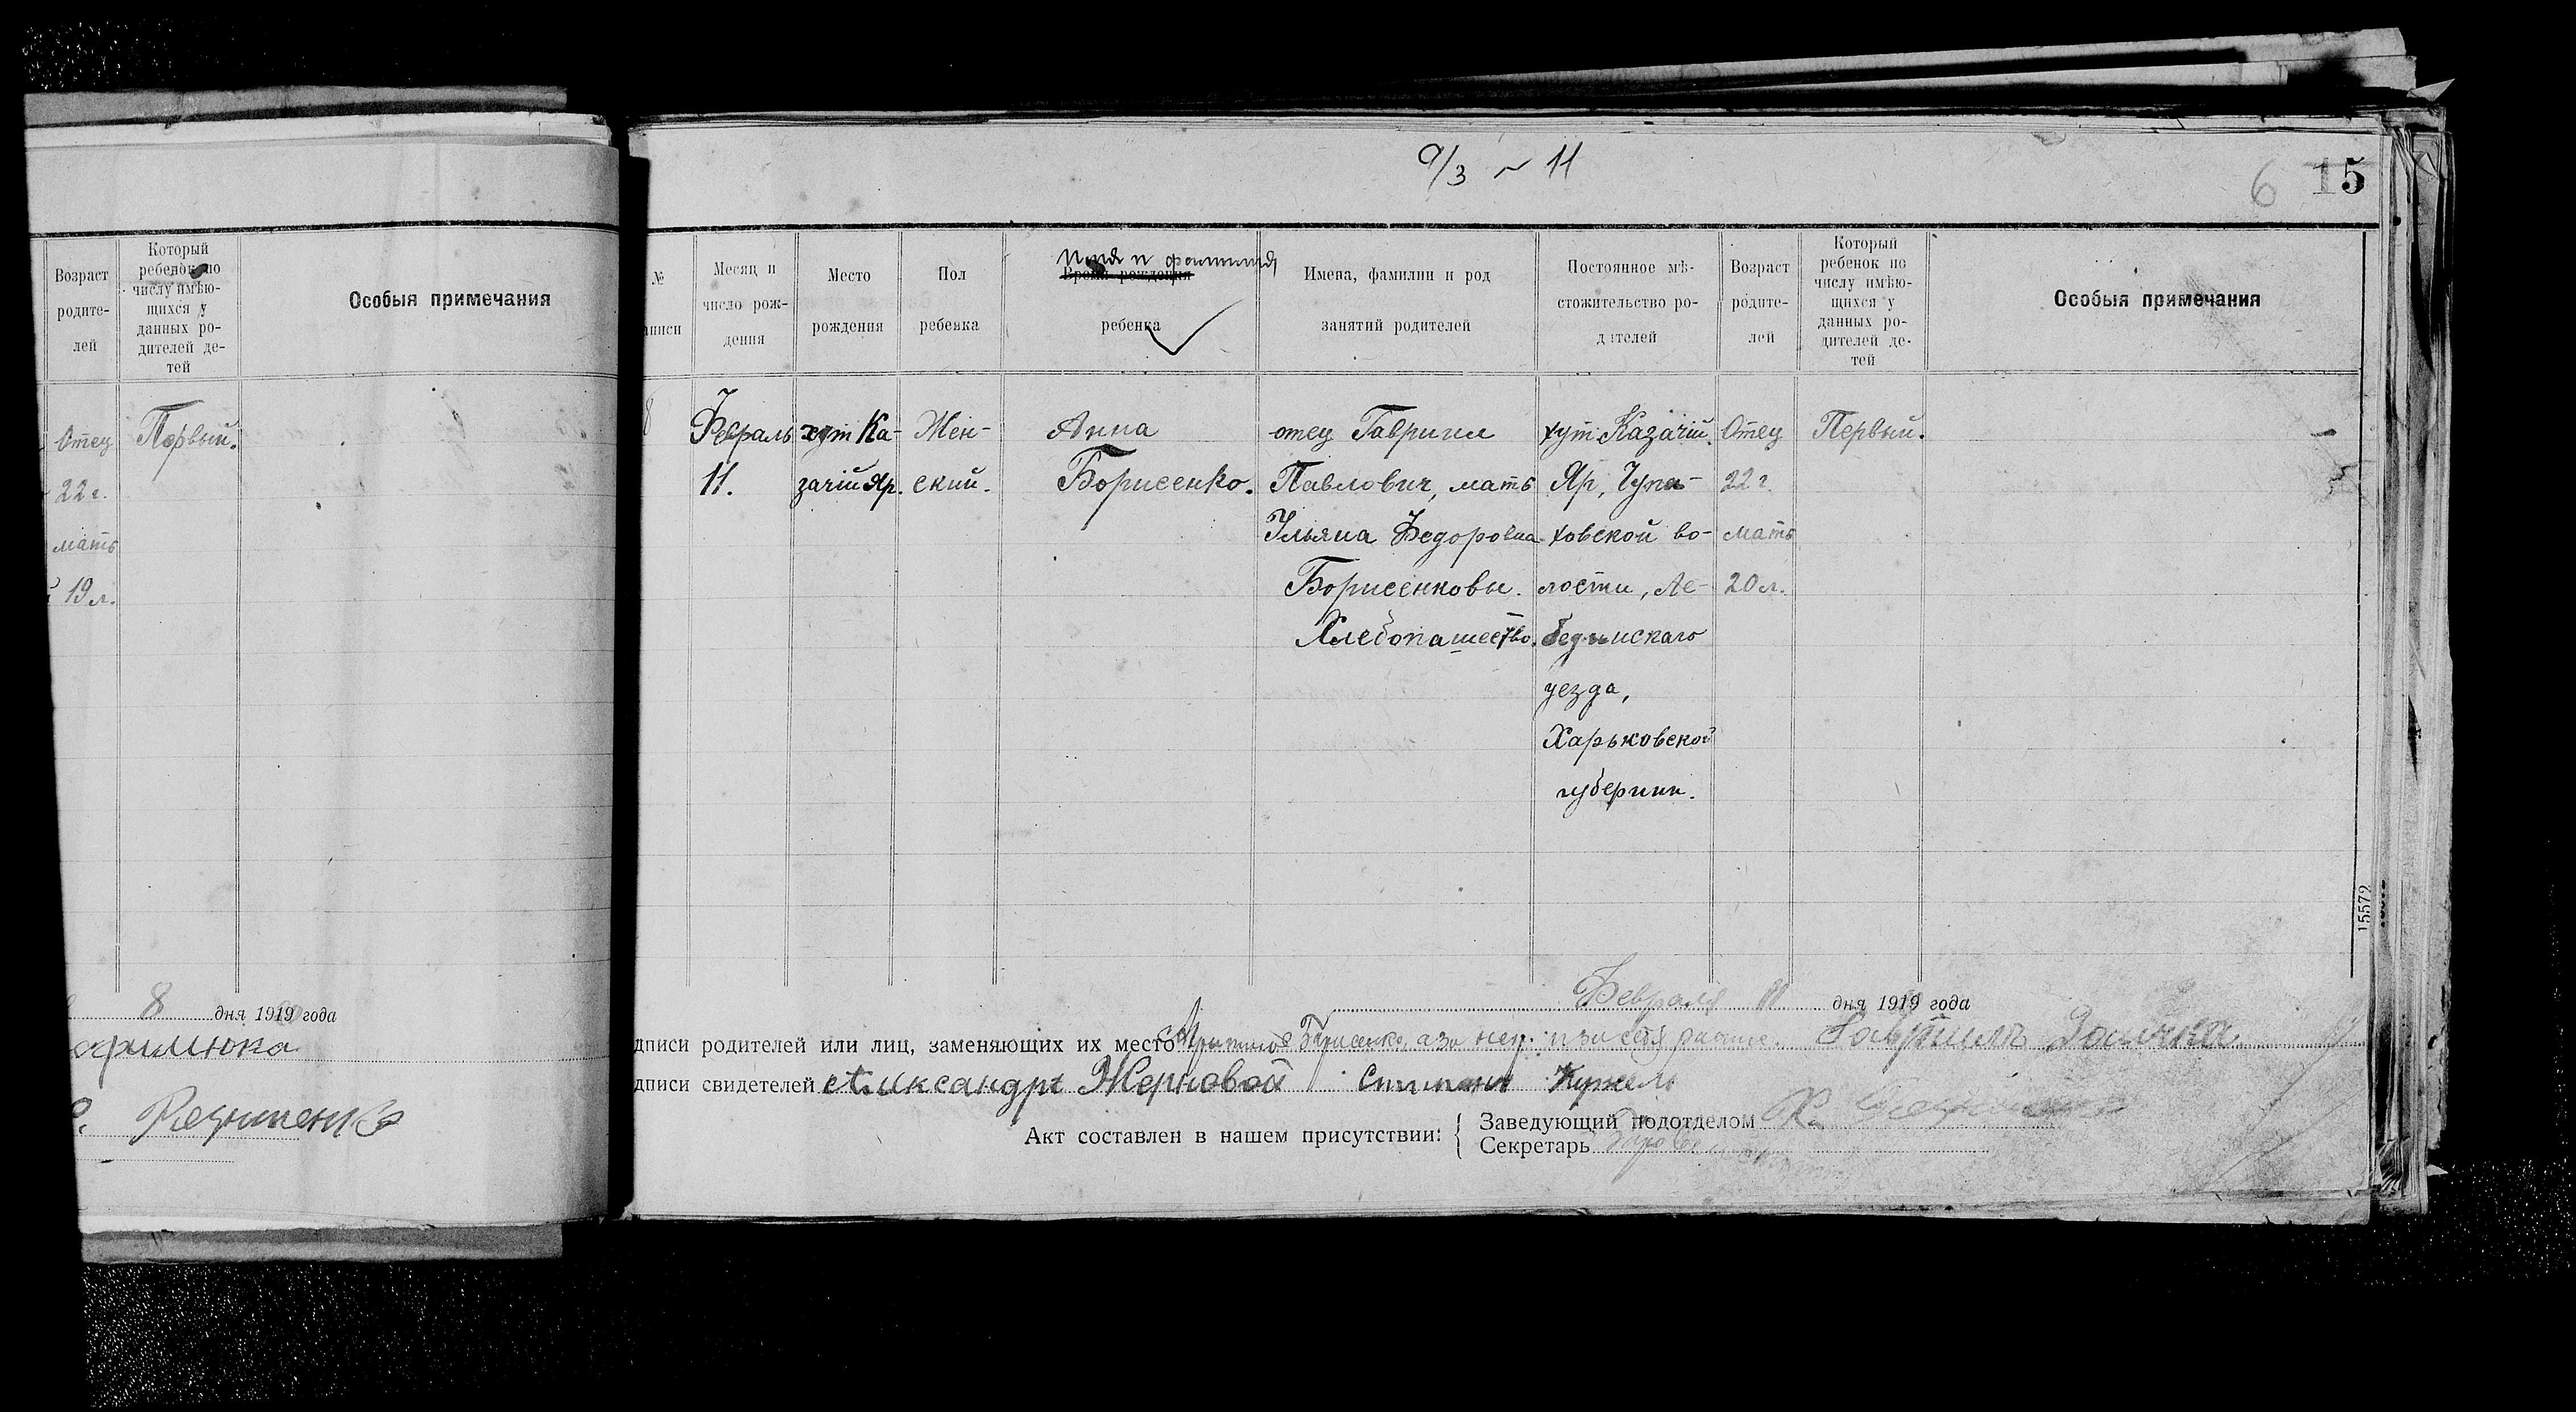 Возраст
родите-
лей
Который
ребенок по
числу имѣю-
щихся у
данных ро-
дителей де-
тей
Особыя примечания
Отец
22 г.
мать
19 л.
Первый.
8 дня 1919 года
9/3 ~ 11
6 15
№
аписи
Месяц и
число рож-
дения
Место
рождения
Пол
ребенка
Имя и фамилия
Время рождения
ребенка
Имена, фамилии и род
занятий родителей
Постоянное мѣ-
стожительство ро-
дителей
Возраст
родите-
лей
Который
ребенок по
числу имѣю-
щихся у
данных ро-
дителей де-
тей
Особыя примечания
8
Февраль
11.
хут Ка-
зачій Яр.
Жен-
ский.
Анна
Борисенко.
отец Гавриил
Павлович, мать
Ульяна Федоровна
Борисенковы.
Хлебопашество.
хут. Казачій
Яр, Чупа-
ховской во-
лости, Ле-
бединскаго
уезда,
Харьковской
губернии.
Отец
22 г.
мать
20 л.
Первый.
15572
Февраля 11 дня 1919 года
дписи родителей или лиц, заменяющих их место
дписи свидетелей Александръ Жерновой Степанъ Кужель
Акт составлен в нашем присутствии:
Заведующий подотделом
Секретарь